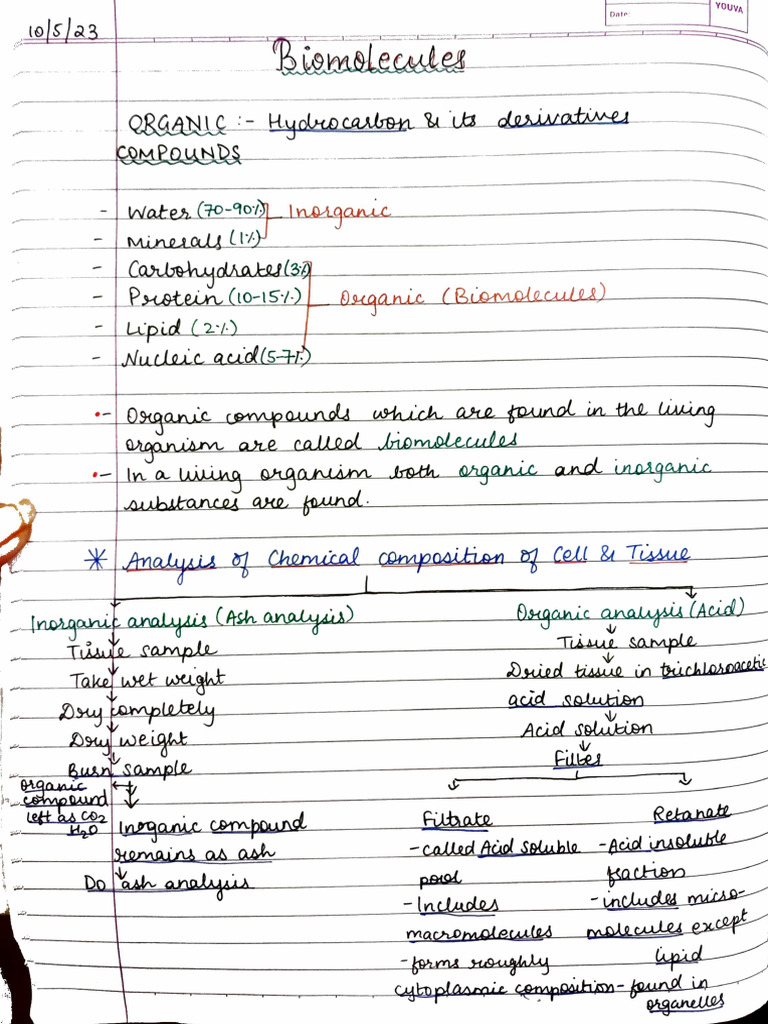 10/5/23
Date:
YOUVA
Biomolecules
ORGANIC :- Hydrocarbon & its derivatives
COMPOUNDS
- Water (70-90%)
Inorganic
- Minerals (1%)
- Carbohydrates (3%)
- Protein (10-15%)
Organic (Biomolecules)
- Lipid (2%)
- Nucleic acid (5-7%)
•- Organic compounds which are found in the living
organism are called biomolecules
•- In a living organism both organic and inorganic
substances are found.
* Analysis of Chemical composition of Cell & Tissue
Inorganic analysis (Ash analysis)
Tissue sample
Take wet weight
Dry completely
Dry weight
Burn sample
organic
compound
left as CO2
H2O
Inorganic compound
remains as ash
Do ash analysis
Organic analysis (Acid)
Tissue sample
Dried tissue in trichloroacetic
acid solution
Acid solution
Filter
Filtrate
- called Acid soluble
pool
- Includes
macromolecules
- forms roughly
cytoplasmic composition
Retanate
- Acid insoluble
fraction
- includes micro-
molecules except
lipid
- found in
organelles